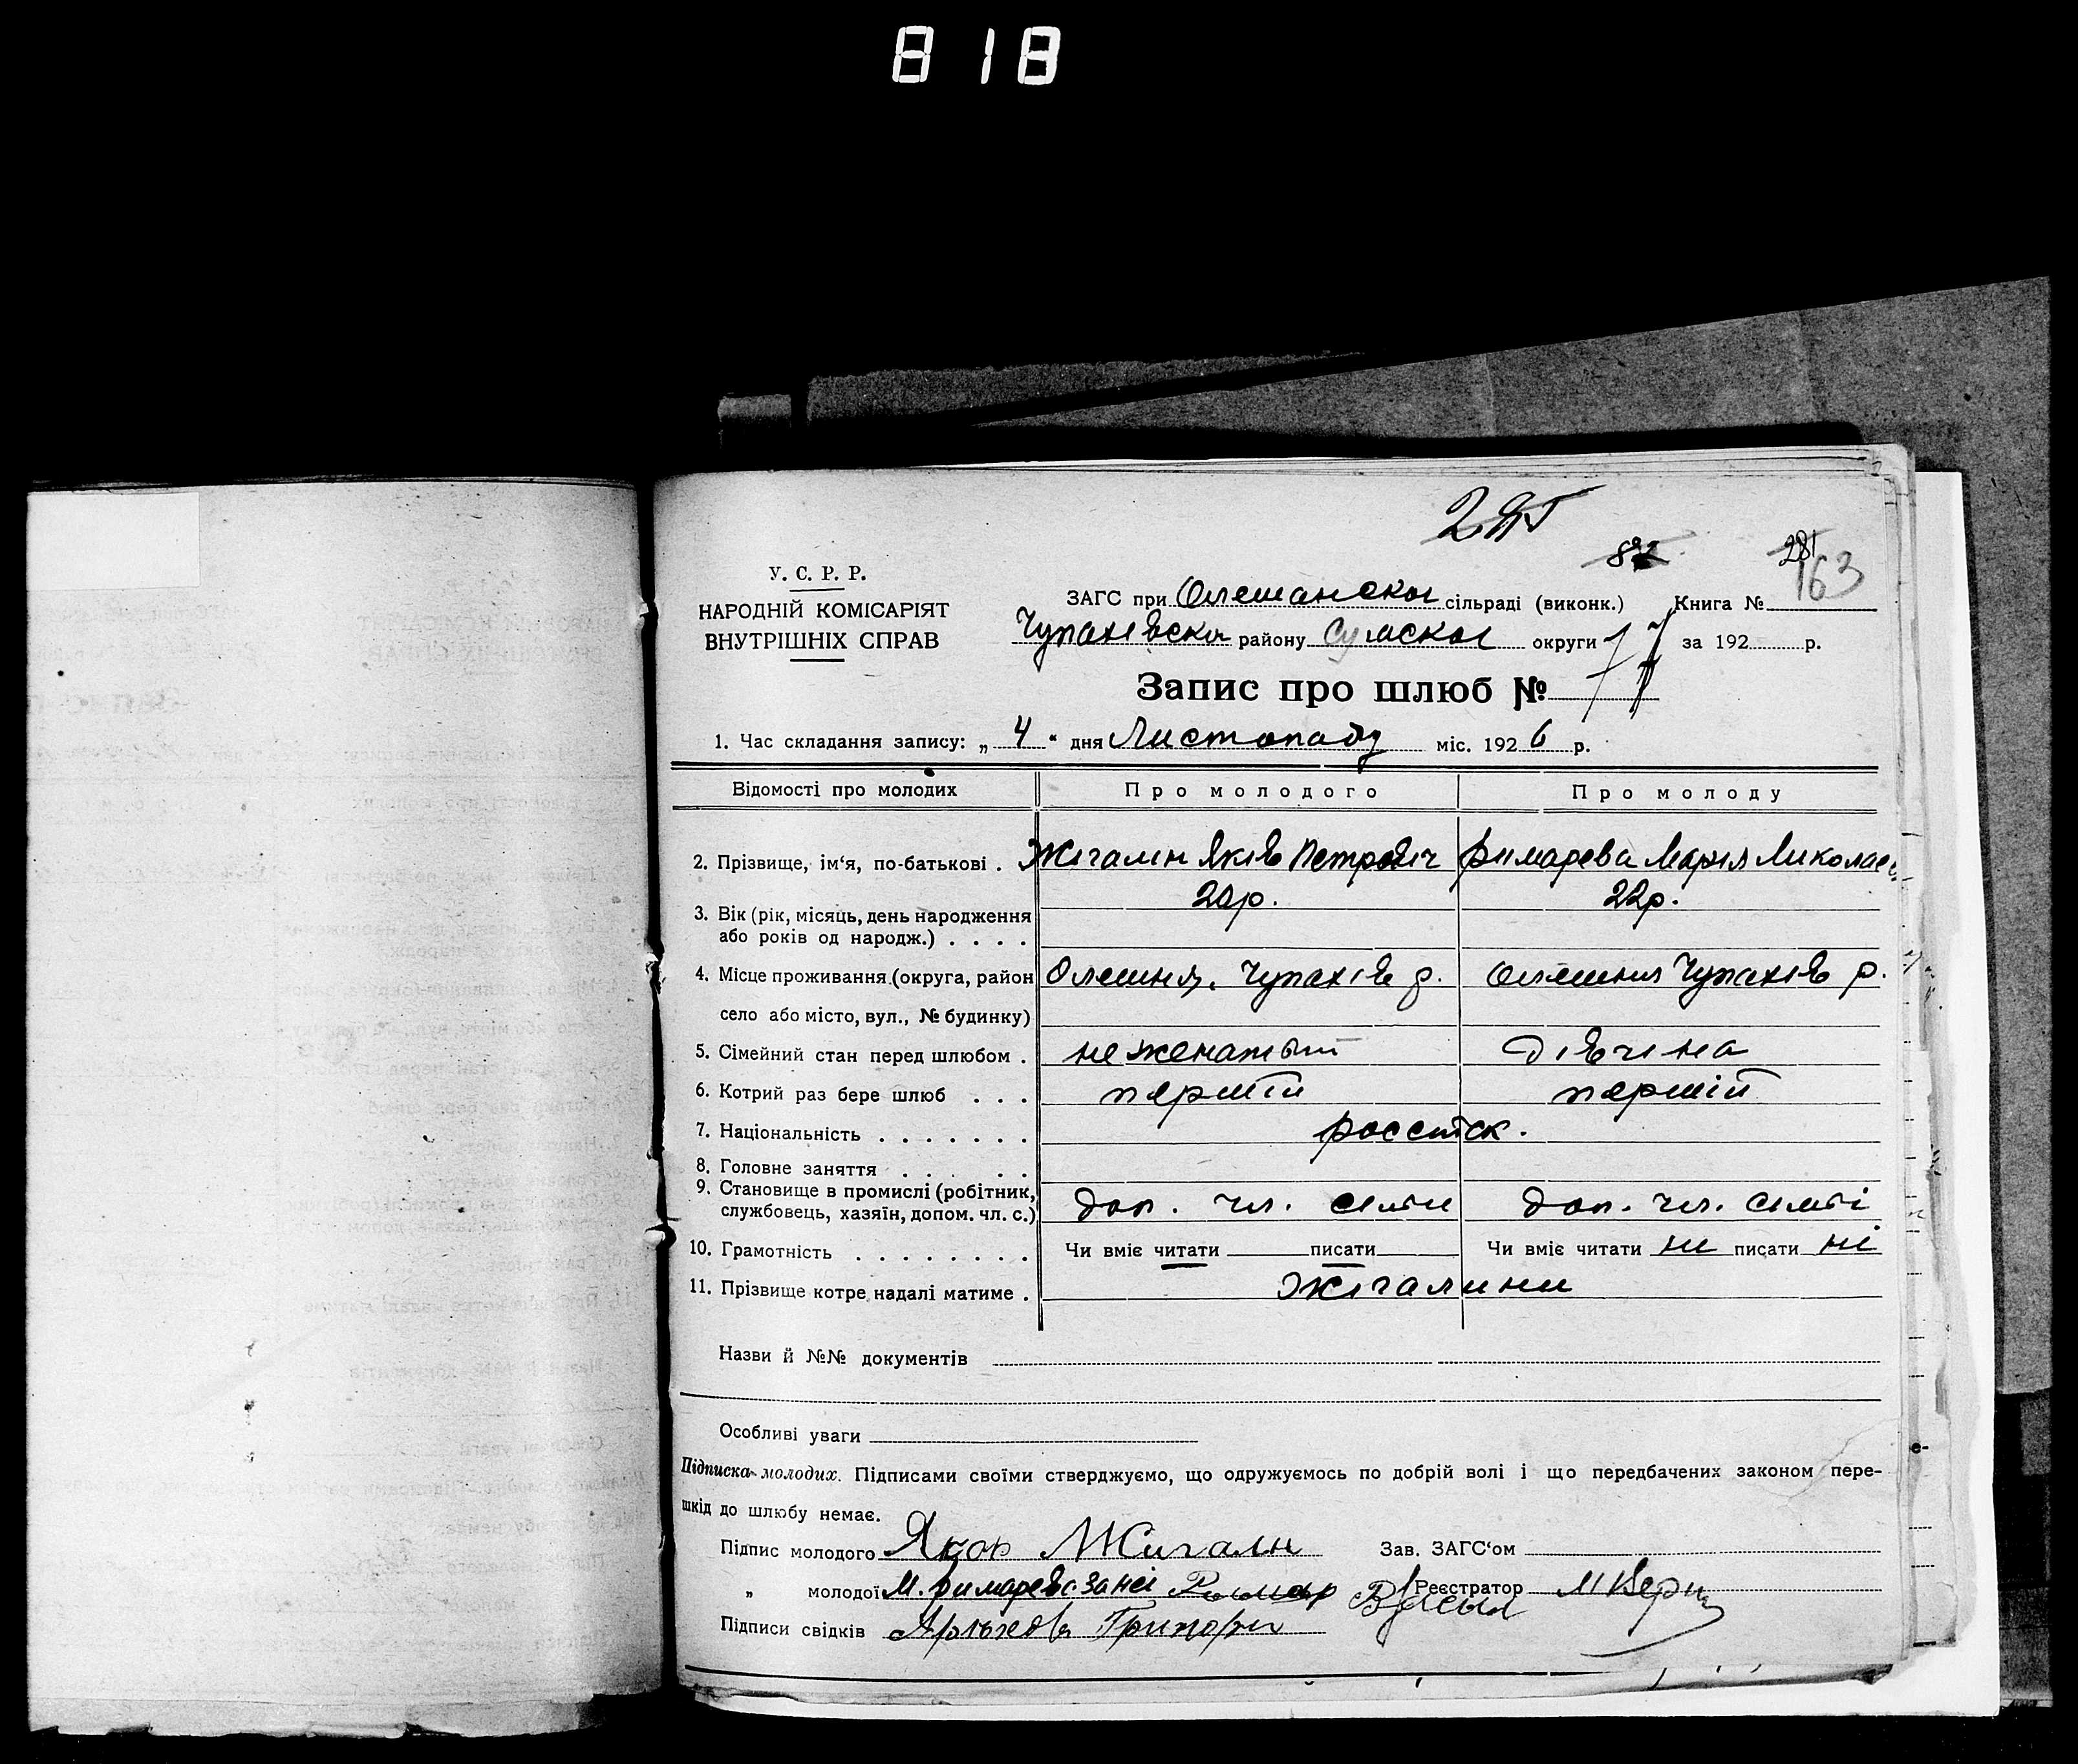 818
У. С. Р. Р.
НАРОДНІЙ КОМІСАРІЯТ
ВНУТРІШНІХ СПРАВ
281
163
ЗАГС при Олешанскої сільраді (виконк.) Книга №
Чупахівска району Сумскої округи за 192 р.
Запис про шлюб №
1. Час складання запису: „ 4 " дня Листопаду міс. 192 6 р.
Відомості про молодих
Про молодого
Про молоду
2. Прізвище, ім‘я, по-батькові . Жігалін Яків Петрович Римарева Марія Миколаев
3. Вік (рік, місяць, день народження 20р. 22р.
або років од народж.) . . . .
4. Місце проживання (округа, район Олешня, Чупахів р. Олешня Чупахів р.
село або місто, вул., № будинку)
5. Сімейний стан перед шлюбом . не женатый дівчина
6. Котрий раз бере шлюб . . . перший перший
7. Національність . . . . . . . россійск.
8. Головне заняття . . . .
9. Становище в промислі (робітник,
службовець, хазяїн, допом. чл. с.) доп. чл. сімї доп. чл. сімї
10. Грамотність . . . . . . . . Чи вміє читати писати Чи вміє читати ни писати ні
11. Прізвище котре надалі матиме . Жігалини
Назви й №№ документів
Особливі уваги
Підписка молодих. Підписами своїми стверджуємо, що одружуємось по добрій волі і що передбачених законом пере-
шкід до шлюбу немає.
Підпис молодого Яков Жигалн Зав. ЗАГС‘ом
„ молодої М. Римарева за неї Рымар Васыл Реєстратор
Підписи свідків